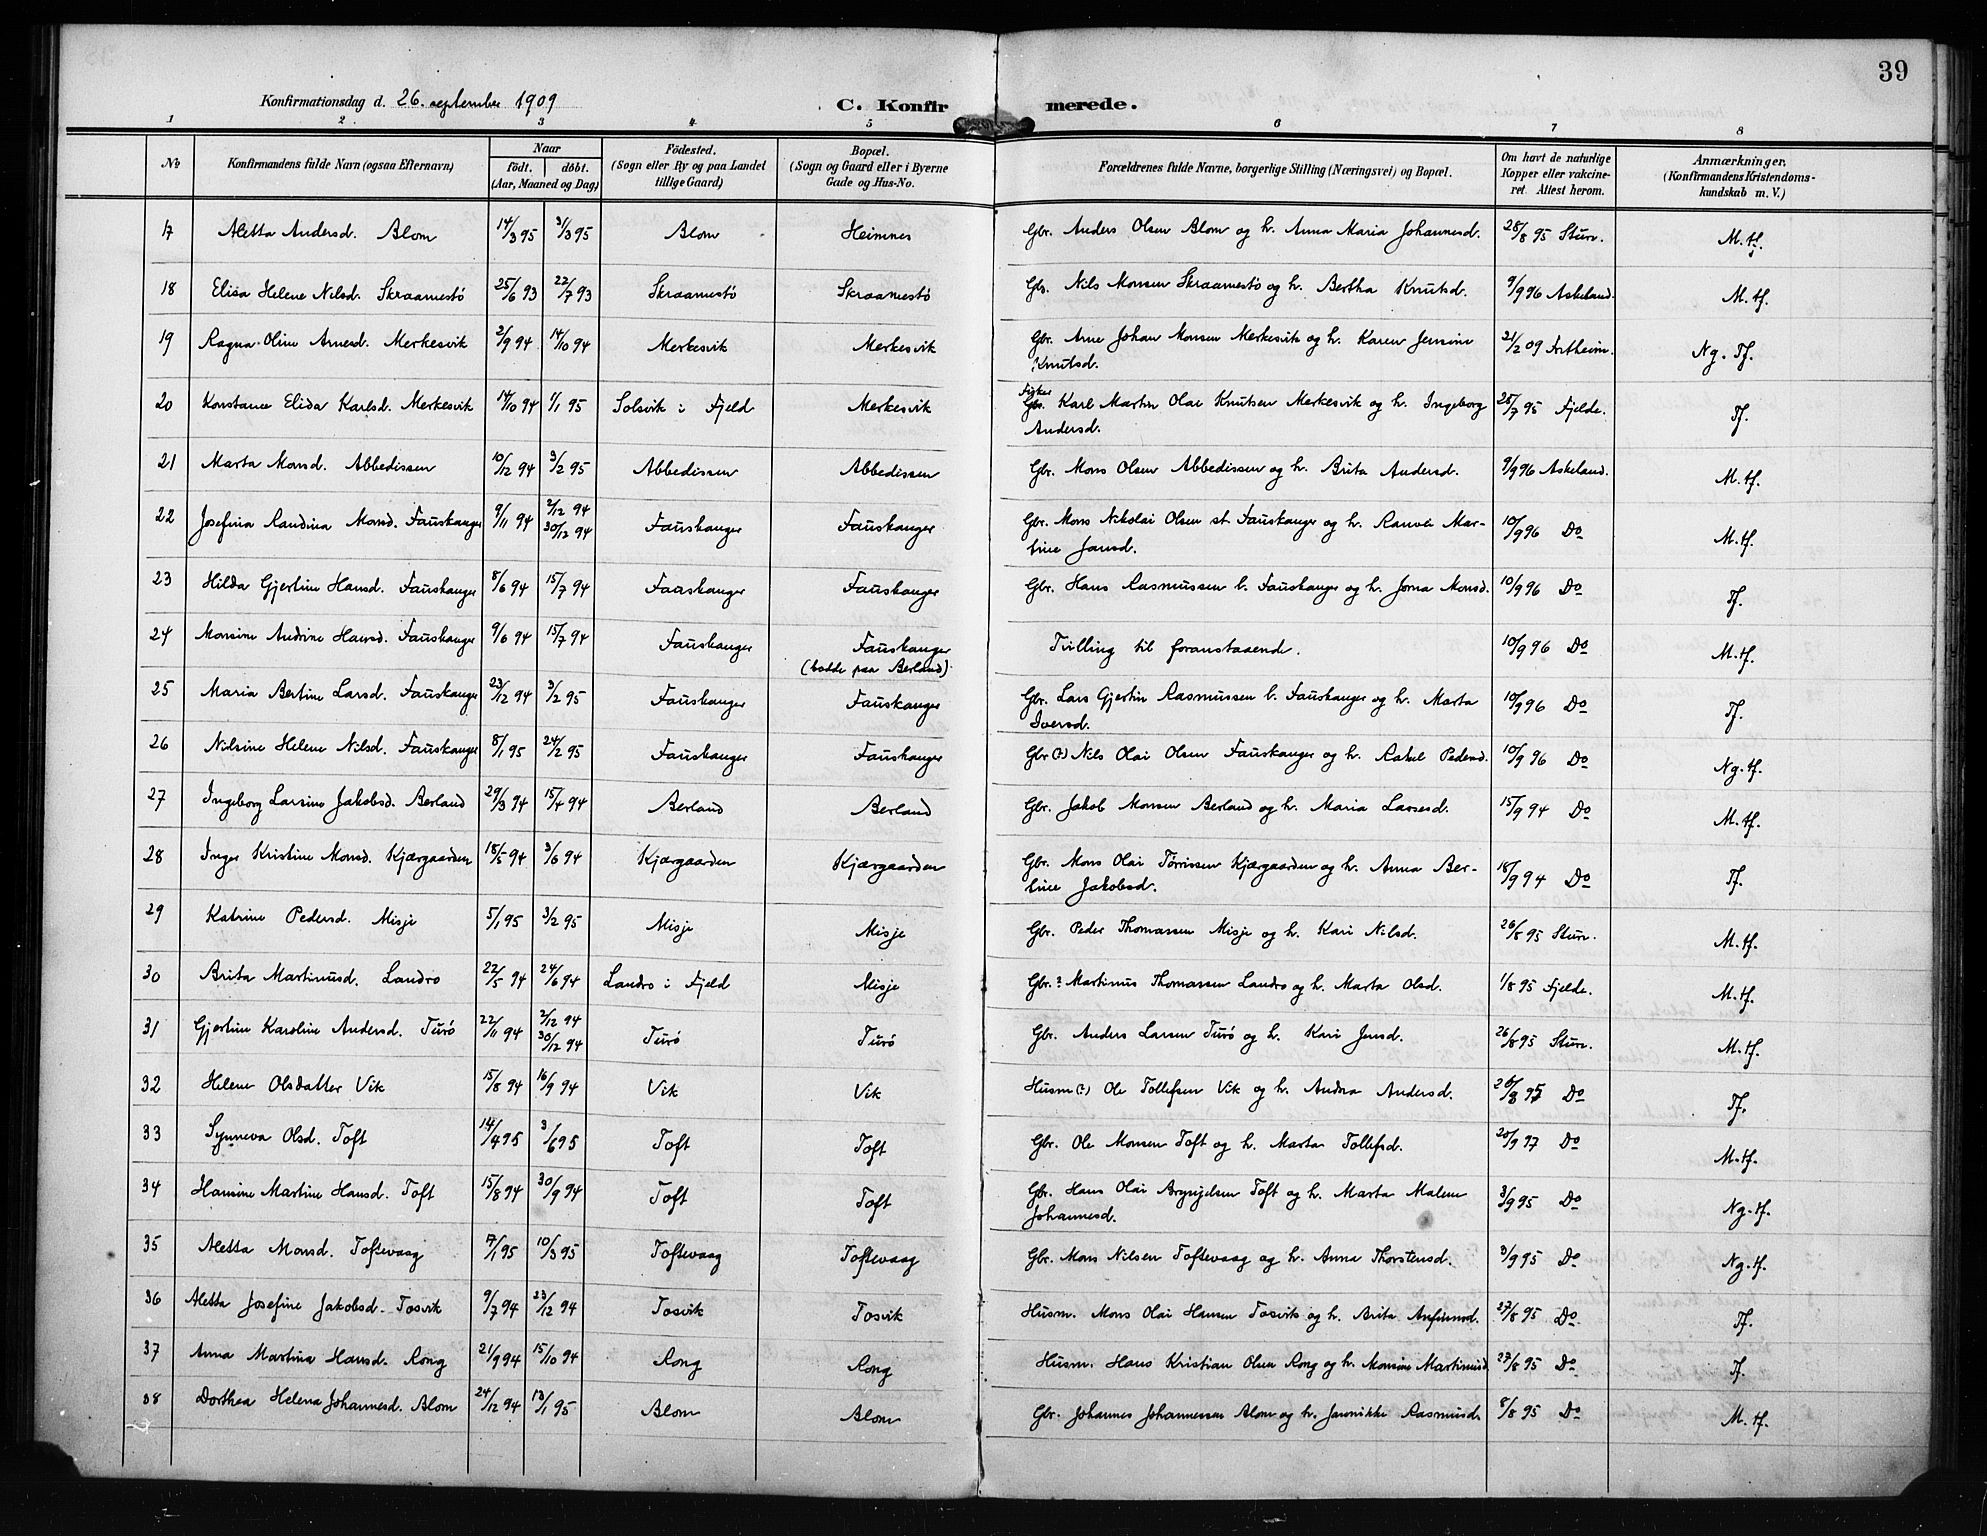 39
Konfirmationsdag d. 26. september 1909 C. Konfirmerede.
1 2 3 4 5 6 7 8
No Konfirmandens fulde Navn (ogsaa Efternavn) Naar födt. döbt. (Aar, Maaned og Dag) Födested. (Sogn eller By og paa Landet tillige Gaard) Bopæl. (Sogn og Gaard eller i Byerne Gade og Hus-No. Forældrenes fulde Navne, borgerlige Stilling (Næringsvei) og Bopæl. Om havt de naturlige Kopper eller vakcineret. Attest herom. Anmærkninger. (Konfirmandens Kristendomskundskab m. V.)
17 Aletta Andersd. Blom 14/3 95 31/3 95 Blom Heimnes Gbr. Anders Olsen Blom og h. Anna Maria Johannesd. 28/8 95 Sture. M.tf.
18 Elisa Helene Nilsd. Skraamestö 25/6 93 22/7 93 Skraamestö Skraamestö Gbr. Nils Monsen Skraamestö og h. Bertha Knutsd. 9/9 96 Askeland. M.tf.
19 Ragna Oline Arnesd. Merkesvik 2/9 94 14/10 94 Merkesvik Merkesvik Gbr. Arne Johan Monsen Merkesvik og h. Karen Jensine
Knutsd. 21/2 09 Ng. Tf.
20 Konstance Elida Karlsd. Merkesvik 14/10 94 1/1 95 Solsvik i Fjeld Merkesvik Fisker Gbr. Karl Martin Olai Knutsen Merkesvik og h. Ingeborg
Andersd. 25/7 95 Fjelde. Tf.
21 Marta Monsd. Abbedissen 10/12 94 3/2 95 Abbedissen Abbedissen Gbr. Mons Olsen Abbedissen og h. Brita Andersd. 9/9 96 Askeland. M.tf.
22 Josefina Randina Monsd. Fauskanger 9/11 94 2/12 94 30/12 94 Fauskanger Fauskanger Gbr. Mons Nikolai Olsen st. Fauskanger og h. Ranvei Mar-
tine Jansd. 10/9 96 Do M.tf.
23 Hilda Gjertine Hansd. Fauskanger 8/6 94 15/7 94 Fauskanger Fauskanger Gbr. Hans Rasmussen l. Fauskanger og h. Jorna Monsd. 10/9 96 Do Tf.
24 Monsine Andrine Hansd. Fauskanger 9/6 94 15/7 94 Fauskanger Fauskanger Tvilling til foranstaaende. 10/9 96 Do M.tf.
(bodde paa Berland)
25 Maria Bertine Larsd. Fauskanger 23/12 94 3/2 95 Fauskanger Fauskanger Gbr. Lars Gjertin Rasmussen l. Fauskanger og h. Marta
Iversd. 10/9 96 Do Tf.
26 Nilsine Helene Nilsd. Fauskanger 8/1 95 24/2 95 Fauskanger Fauskanger Gbr (?) Nils Olai Olsen Fauskanger og h. Rakel Pedersd. 10/9 96 Do Ng.tf.
27 Ingeborg Larsine Jakobsd. Berland 29/3 94 15/4 94 Berland Berland Gbr. Jakob Monsen Berland og h. Maria Larsesd. 15/9 94 Do M.tf.
28 Inger Kristine Monsd. Kjærgaarden 18/5 94 3/6 94 Kjærgaarden Kjærgaarden Gbr. Mons Olai Törrissen Kjærgaarden og h. Anna Ber-
tine Jakobsd. 18/9 94 Do Tf.
29 Katrine Pedersd. Misje 5/1 95 3/2 95 Misje Misje Gbr. Peder Thomassen Misje og h. Kari Nilsd. 26/8 95 Sture. M.tf.
30 Brita Martinusd. Landro 22/5 94 24/6 94 Landro i Fjeld Misje Gbr.? Martinus Thomassen Landro og h. Marta Olsd. 1/8 95 Fjelde. M.tf.
31 Gjertine Karoline Andersd. Turö 22/11 94 2/12 94 30/12 94 Turö Turö Gbr. Anders Larsen Turö og h. Kari Jensd. 26/8 95 Sture. M.tf.
32 Helene Olsdatter Vik 15/8 94 16/9 94 Vik Vik Husm (?) Ole Tollefsen Vik og h. Andrea Andersd. 26/8 95 Do Tf.
33 Synneva Olsd. Toft 14/4 95 3/6 95 Toft Toft Gbr. Ole Monsen Toft og h. Marta Tollefsd. 20/9 97 Do M.tf.
34 Hansine Martine Hansd. Toft 15/8 94 30/9 94 Toft Toft Gbr. Hans Olai Brynjelsen Toft og h. Marta Malene
Johannesd. 3/9 95 Do Ng.tf.
35 Aletta Monsd. Toftevaag 17/1 95 10/3 95 Toftevaag Toftevaag Gbr. Mons Nilsen Toftevaag og h. Anna Thorstensd. 3/9 95 Do Ng.tf.
36 Aletta Josefine Jakobsd. Tosvik 9/7 94 23/12 94 Tosvik Tosvik Husm. Mons Olai Hansen Tosvik og h. Brita Anfinnsd. 27/8 95 Do Tf.
37 Anna Martina Hansd. Rong 21/9 94 15/10 94 Rong Rong Husm. Hans Kristian Olsen Rong og h. Monsine Martinusd. 27/8 95 Do Tf.
38 Dorthea Helena Johannesd. Blom 24/12 94 13/1 95 Blom Blom Gbr. Johannes Johannessen Blom og h. Jannikke Rasmusd. 8/8 95 Do M.tf.